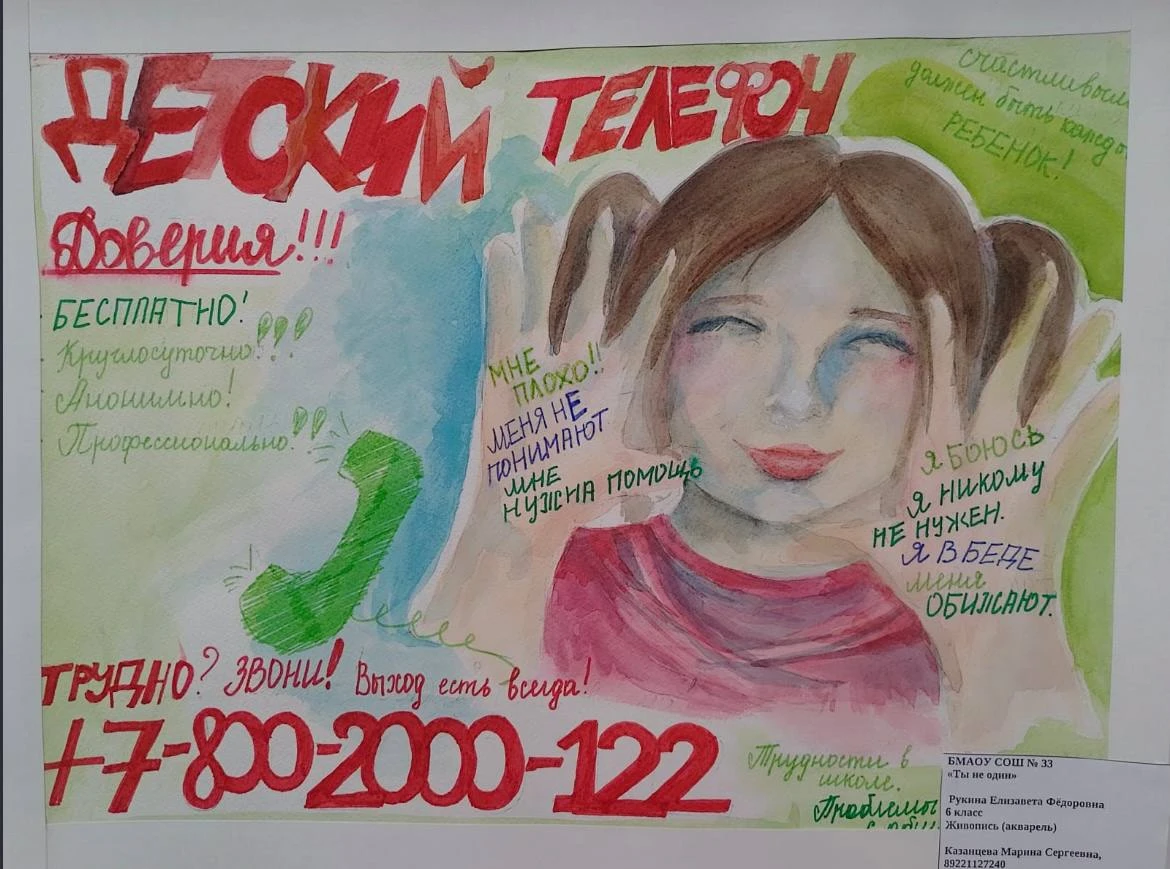 ДЕТСКИЙ ТЕЛЕФОН
Доверия!!!
БЕСПЛАТНО!
Круглосуточно!!!
Анонимно!
Профессионально!!!
счастливым
должен быть
РЕБЕНОК!
МНЕ
ПЛОХО!!
МЕНЯ НЕ
ПОНИМАЮТ
МНЕ
НУЖНА ПОМОЩЬ
Я БОЮСЬ
Я НИКОМУ
НЕ НУЖЕН.
Я В БЕДЕ
меня
ОБИЖАЮТ.
ТРУДНО? ЗВОНИ! Выход есть всегда!
+7-800-2000-122
Трудности в
школе.
Проблемы
БМАОУ СОШ № 33
«Ты не один»
Рукина Елизавета Фёдоровна
6 класс
Живопись (акварель)
Казанцева Марина Сергеевна,
89221127240